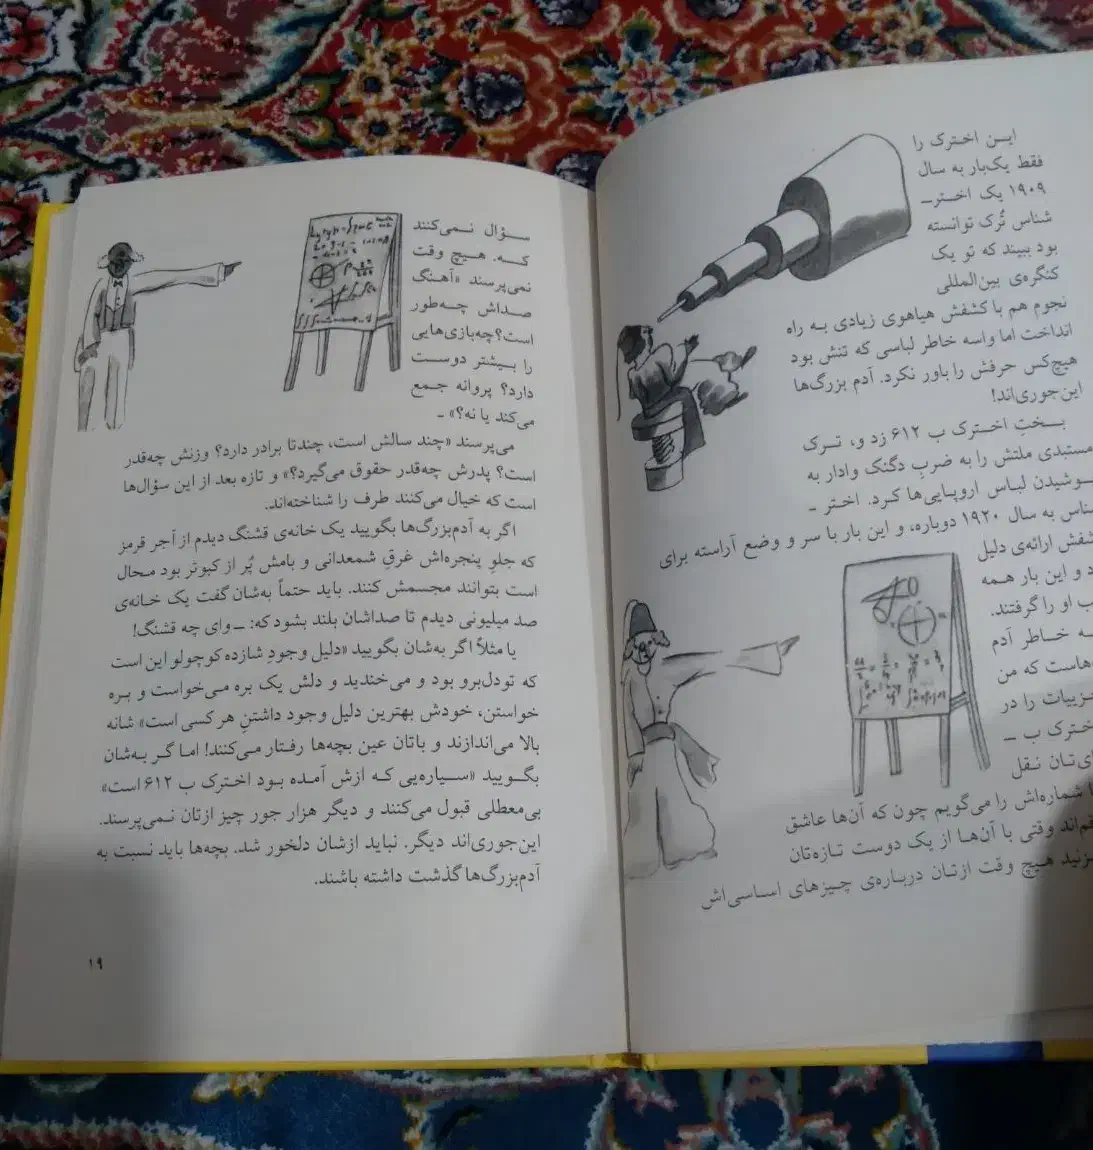 ایـن اخـترک را
فقط یک‌بار به سال
۱۹۰۹ یک اختر-
شناس تُرک توانسته
بود ببیند که تو یک
کنگره‌ی بین‌المللی
نجوم هم با کشفش هیاهوی زیادی بـه راه
انداخت اما واسه خاطر لباسی که تنش بود
هیچ‌کس حرفش را باور نکرد. آدم بزرگ‌ها
این‌جوری‌اند!
بـختِ اخـترک ب ۶۱۲ زد و، تـرک
مستبدی ملتش را به ضربِ دگنک وادار به
ـوشیدن لباس اروپـایی‌ها کـرد. اختر -
ـناس به سال ۱۹۲۰ دوباره، و این بار با سر و وضع آراسته برای
ـشفش ارائه‌ی دلیل
د و این بار همه
ب او را گرفتند.
ـه خـاطر آدم
ـهاست که من
ـزییات را در
ـخترک ب -
ـی‌تـان نـقل
شماره‌اش را می‌گویم چون که آن‌ها عاشق
ـم‌اند وقتی با آن‌هـا از یـک دوست تـازه‌تان
ـزنید هیچ وقت ازتـان دربـاره‌ی چـیزهای اسـاسی‌اش
سـؤال نـمی‌کنند
کـه. هـیچ وقت
نمی‌پرسند «آهـنگ
صـداش چـه‌طور
است؟ چه‌بازی‌هایی
را بـیشتر دوسـت
دارد؟ پروانه جـمع
می‌کند یا نه؟» -
می‌پرسند «چند سالش است، چندتا برادر دارد؟ وزنش چه‌قدر
است؟ پدرش چه‌قدر حقوق می‌گیرد؟» و تازه بعد از این سؤال‌ها
است که خیال می‌کنند طرف را شناخته‌اند.
اگر به آدم‌بزرگ‌ها بگویید یک خانه‌ی قشنگ دیدم از آجر قرمز
که جلوِ پنجره‌اش غرقِ شمعدانی و بامش پُر از کبوتر بود مـحال
است بتوانند مجسمش کنند. باید حتماً به‌شان گفت یک خـانه‌ی
صد میلیونی دیدم تا صداشان بلند بشود که: - وای چه قشنگ!
یا مثلاً اگر به‌شان بگویید «دلیل وجودِ شازده کوچولو این است
که تودل‌برو بود و می‌خندید و دلش یک بره می‌خواست و بـره
خواستن، خودش بهترین دلیل وجود داشتنِ هر کسی است» شانه
بالا می‌اندازند و باتان عین بچه‌ها رفـتار مـی‌کنند! امـا گـر بـه‌شان
بگـویید «سـیاره‌یی کـه ازش آمـده بـود اخـترک ب ۶۱۲ است»
بی‌معطلی قبول می‌کنند و دیگر هزار جور چیز ازتان نـمی‌پرسند.
این‌جوری‌اند دیگر. نباید ازشان دلخور شد. بچه‌ها باید نسبت به
آدم‌بزرگ‌ها گذشت داشته باشند.
۱۹